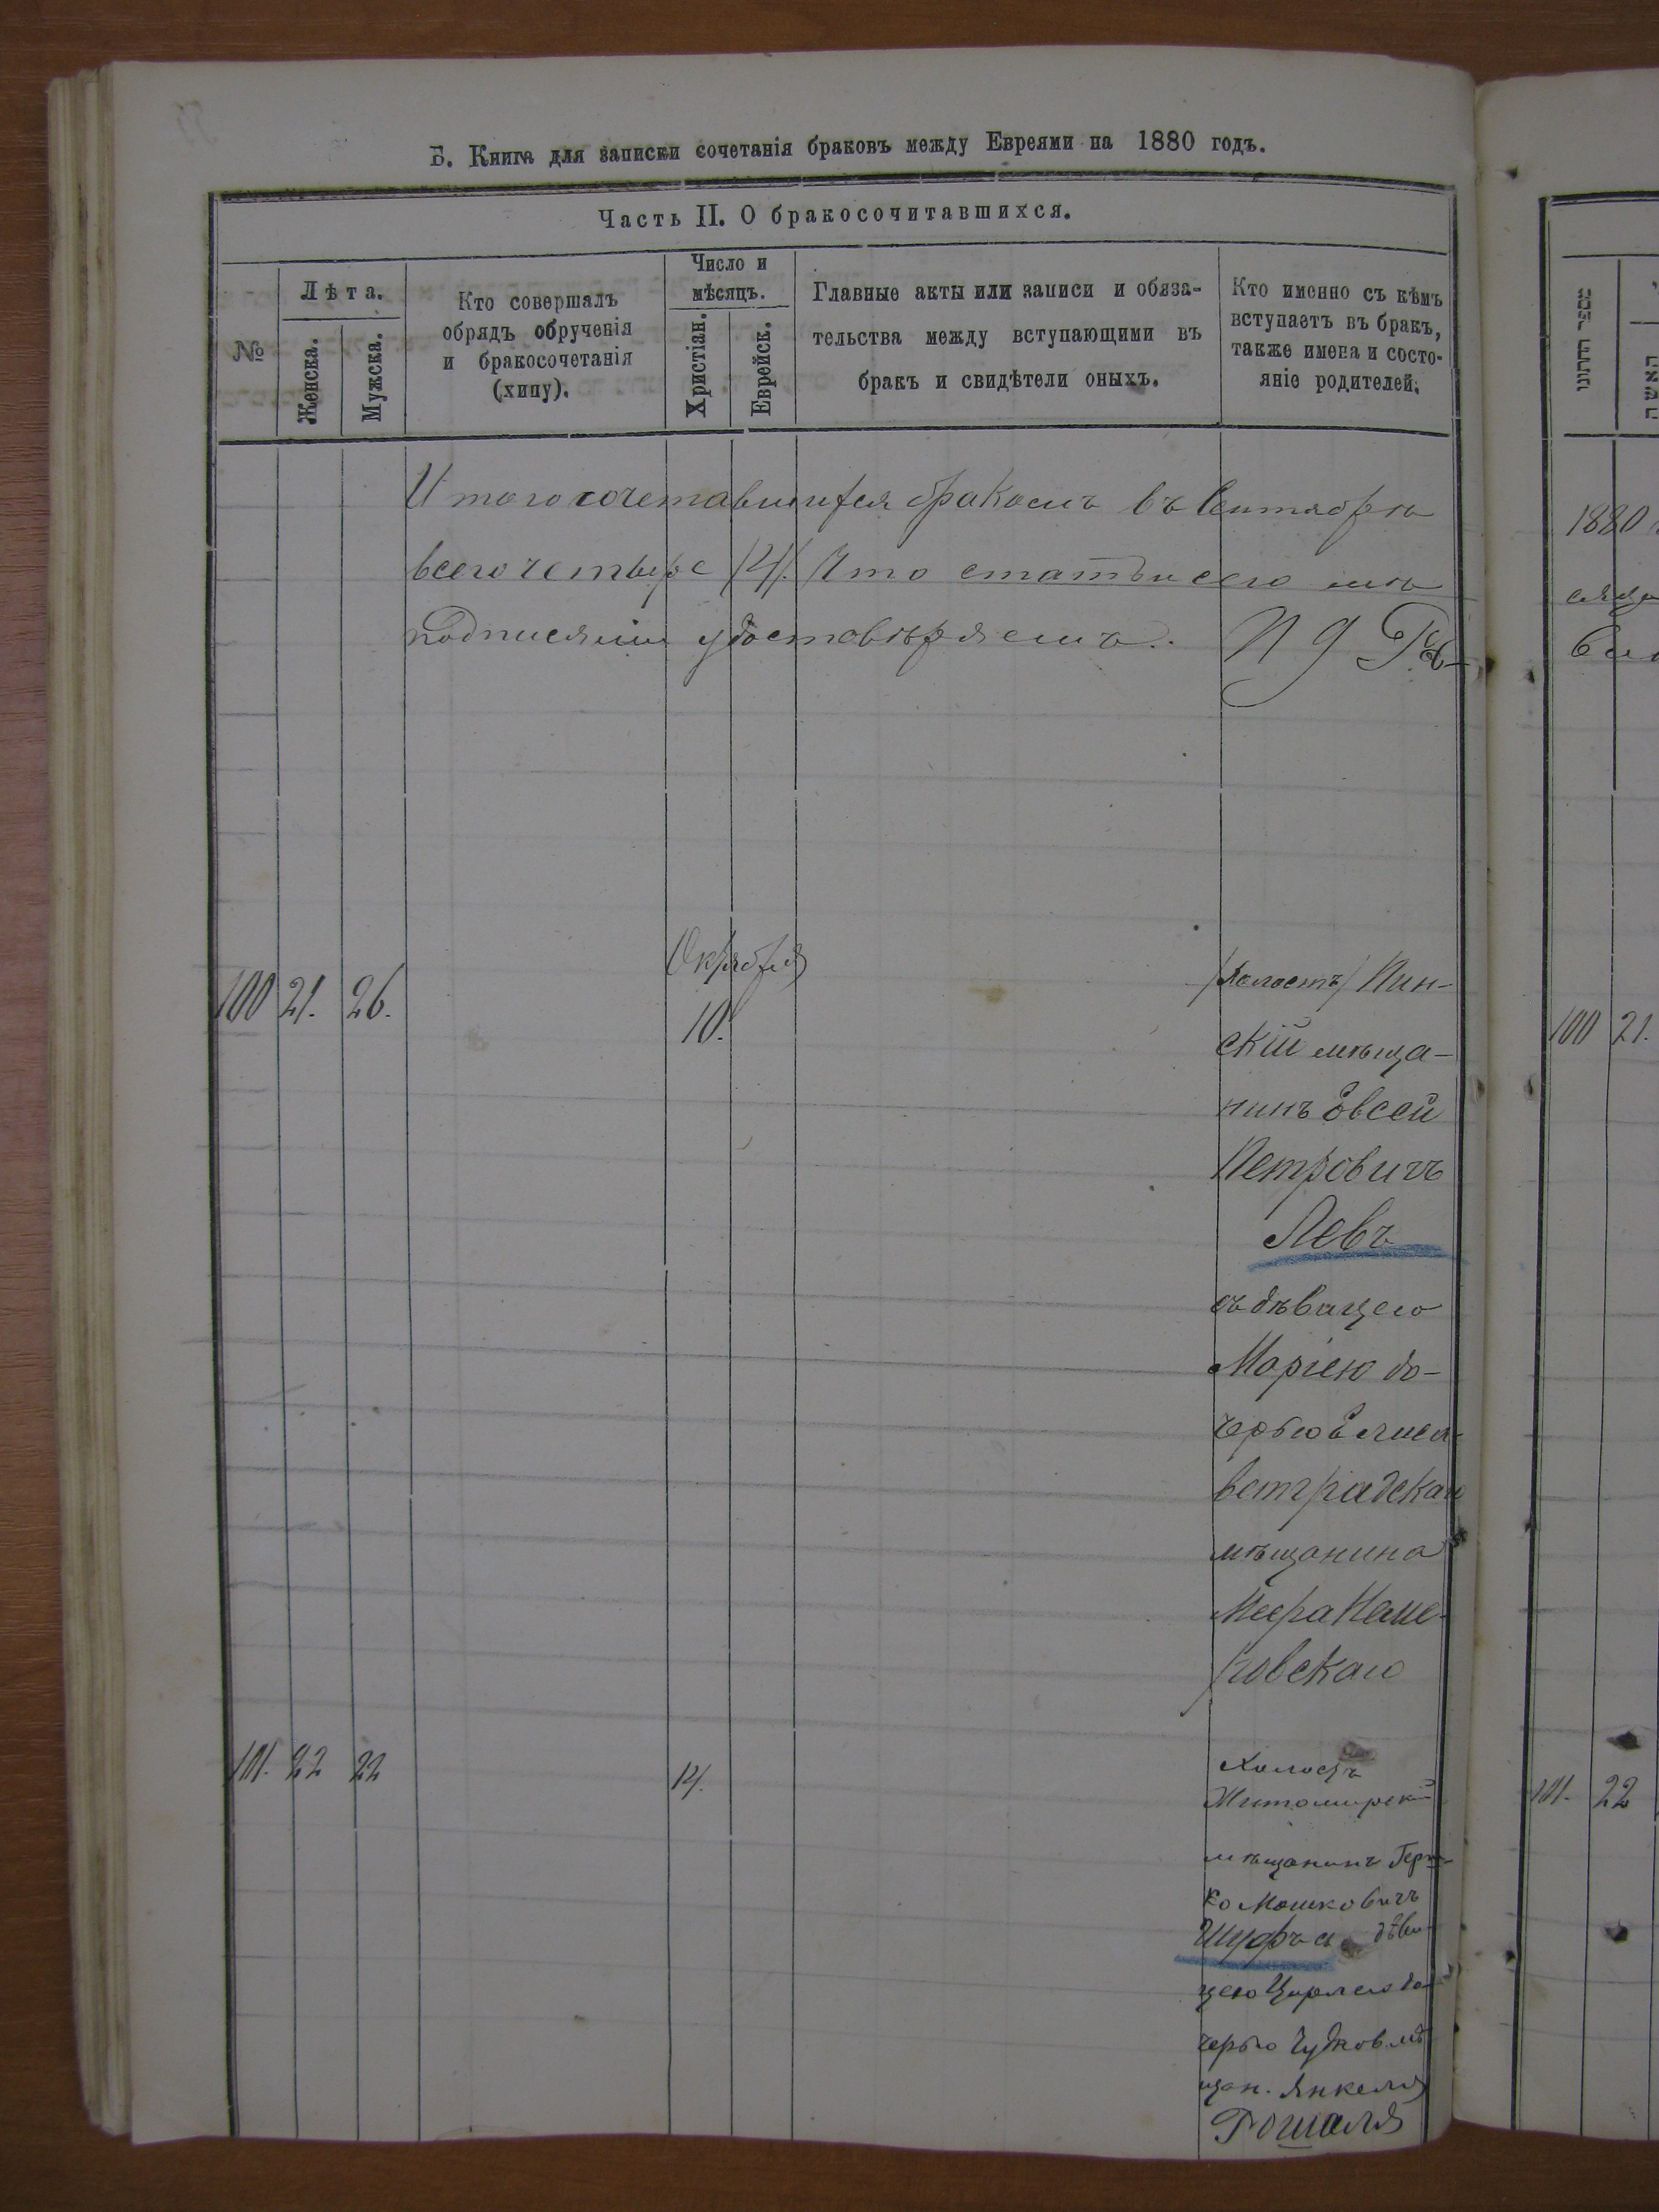 Б. Книга для записки сочетанія браковъ между Евреями на 1880 годъ.
Часть II. О бракосочитавшихся.
№
Лѣта.
Женска.
Мужска.
Кто совершалъ
обрядъ обрученія
и бракосочетанія
(хипу).
Число и
мѣсяцъ.
Христіан.
Еврейск.
Главные акты или записи и обяза-
тельства между вступающими въ
бракъ и свидѣтели оныхъ.
Кто именно съ кѣмъ
вступаетъ въ бракъ,
также имена и состо-
яніе родителей.
Итого сочетавшихся бракомъ въ Сентябрѣ
всего четыре /4/. Что статьи сего мы
подписями удостовѣряемъ.
Октября
100 21. 26. 10.
/холостъ/ Пин-
скій мѣща-
нинъ Евсей
Петровичъ
Левъ
съ дѣвицею
Маріею до-
черью Елиса-
ветградскаго
мѣщанина
Меера Неме-
ровскаго
101. 22 22 14.
Холостъ
Житомирскій
мѣщанинъ Герш-
ко Мошковичъ
Шуфъ съ дѣви-
цею Цирлею до-
черью Чуднов. мѣ
щан. Янкеля
Рошаля
מספר הדורוני
האשה
1880
100 21.
101. 22